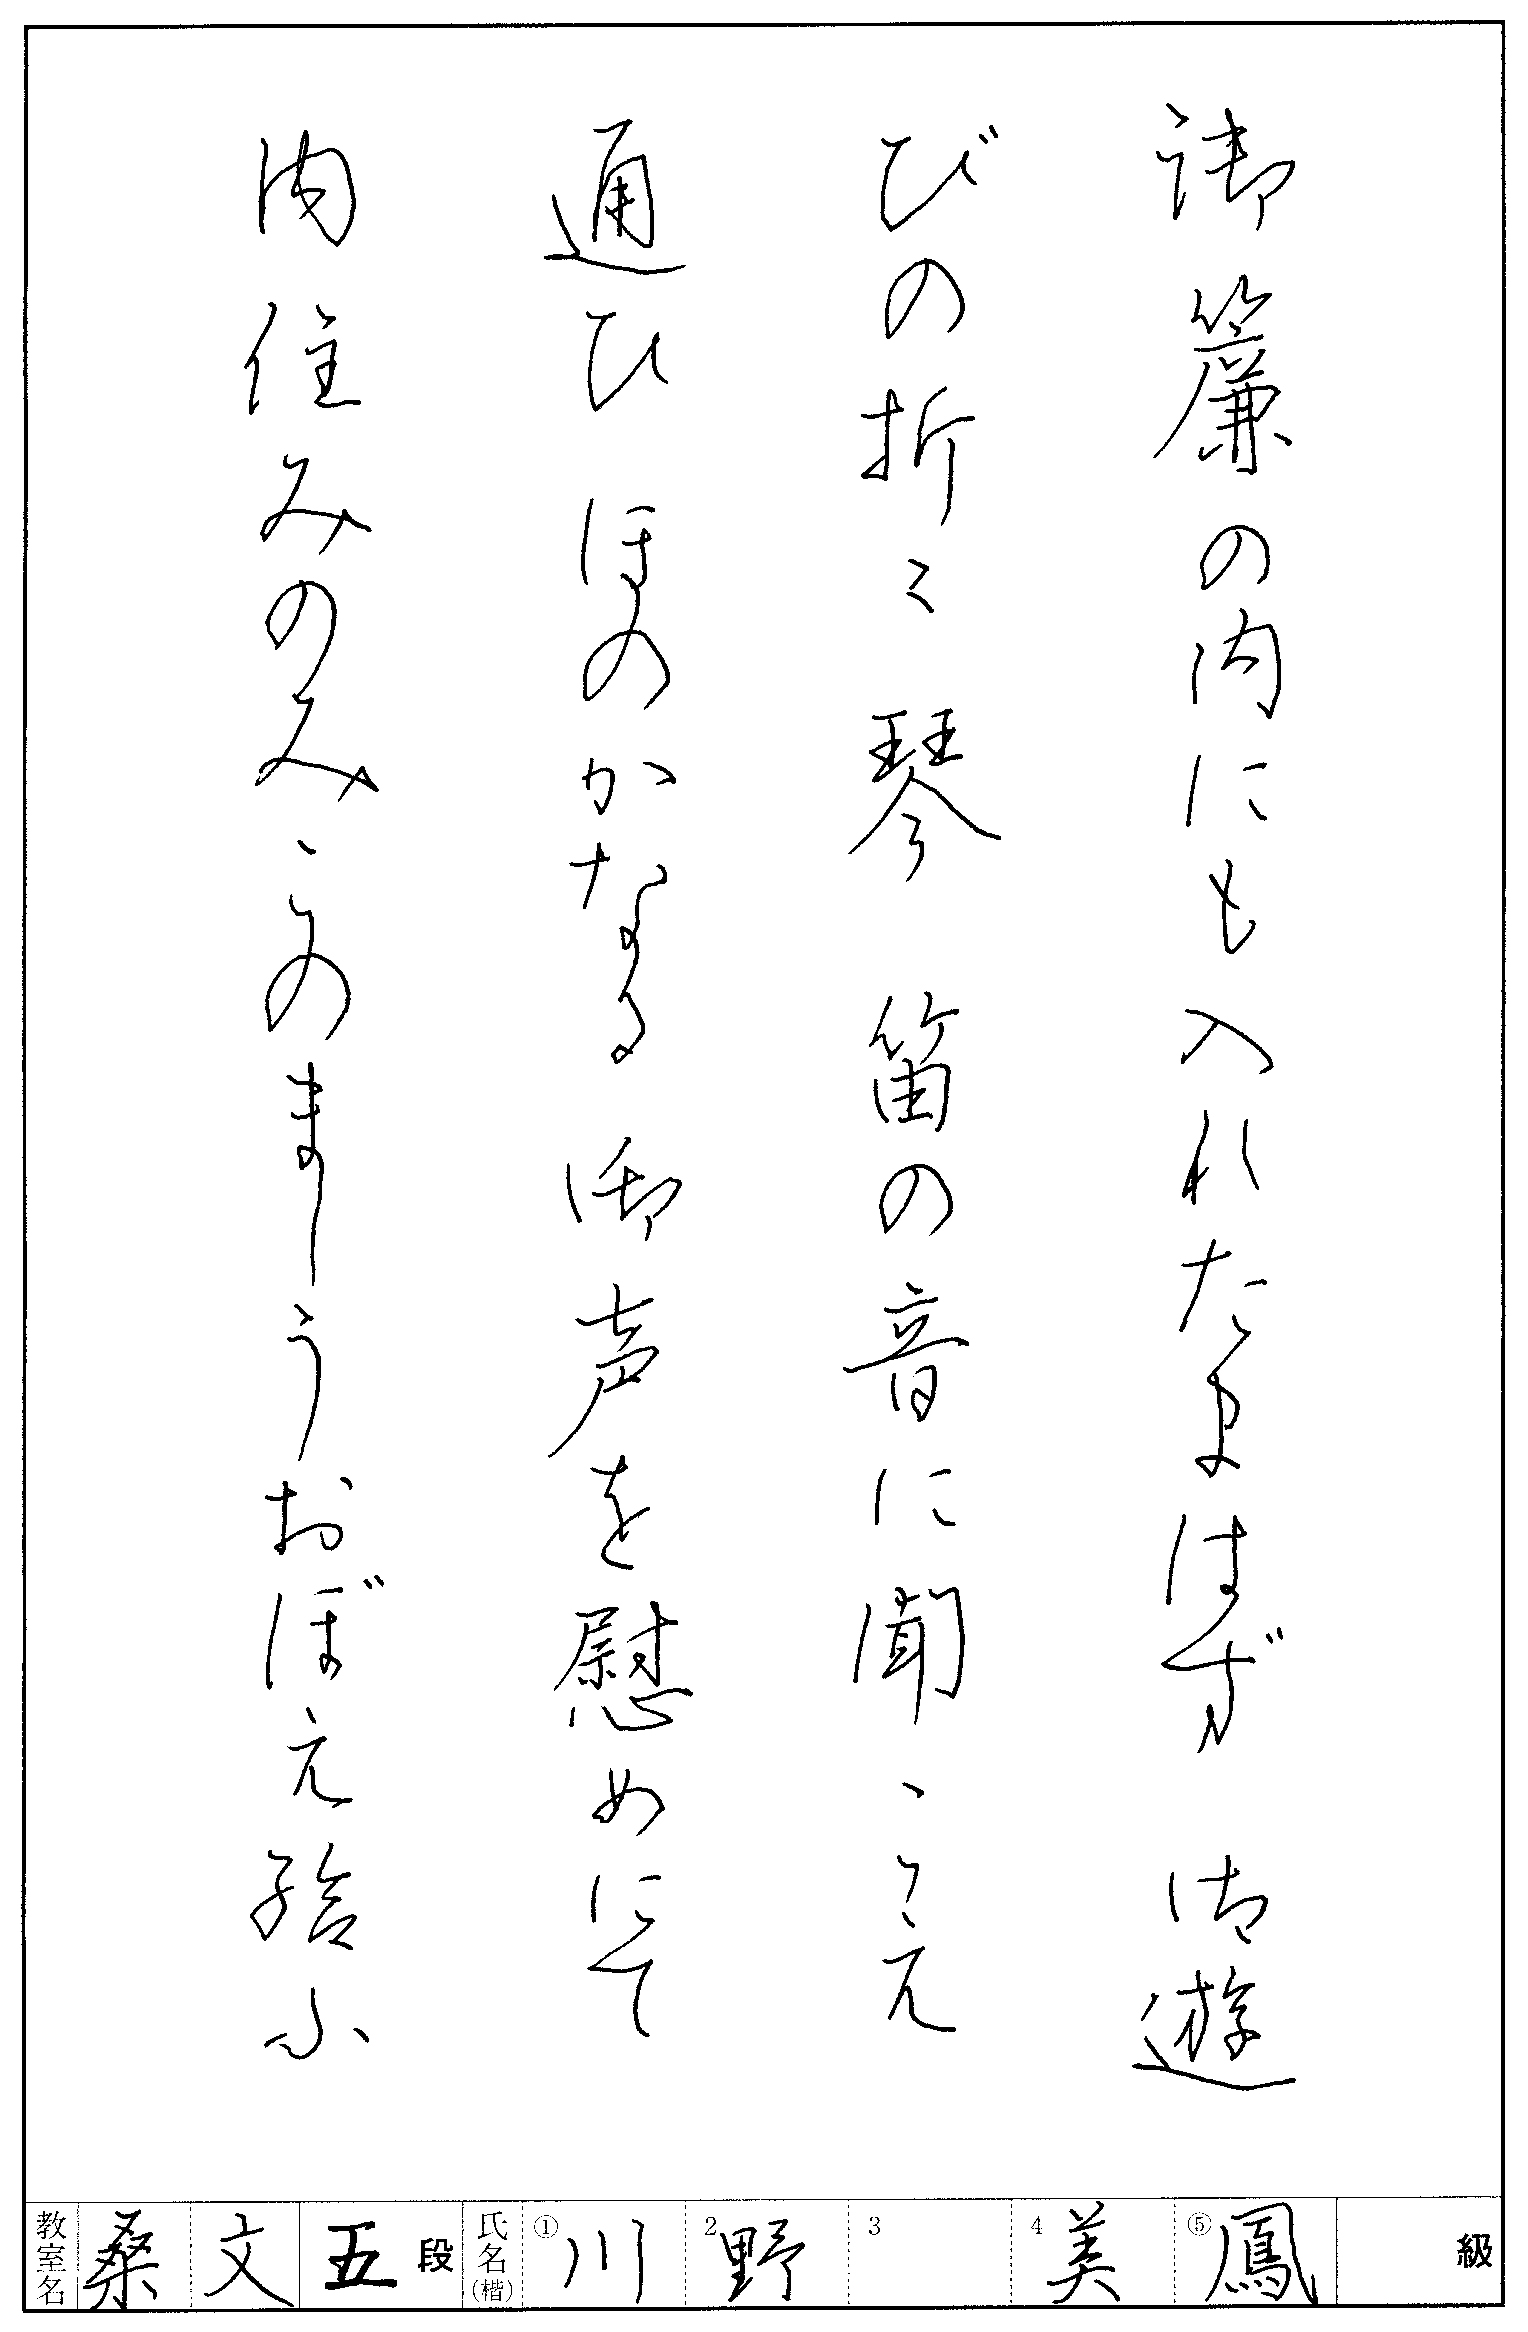 御簾の内にも入れたまはず 御遊
びの折々 琴 笛の音に聞こえ
通ひ ほのかなる御声を慰めにて
内住みのみこのましうおぼえ給ふ
教室名 桑文 五段 氏名(楷) ①川 2野 3 4美 ⑤鳳 級